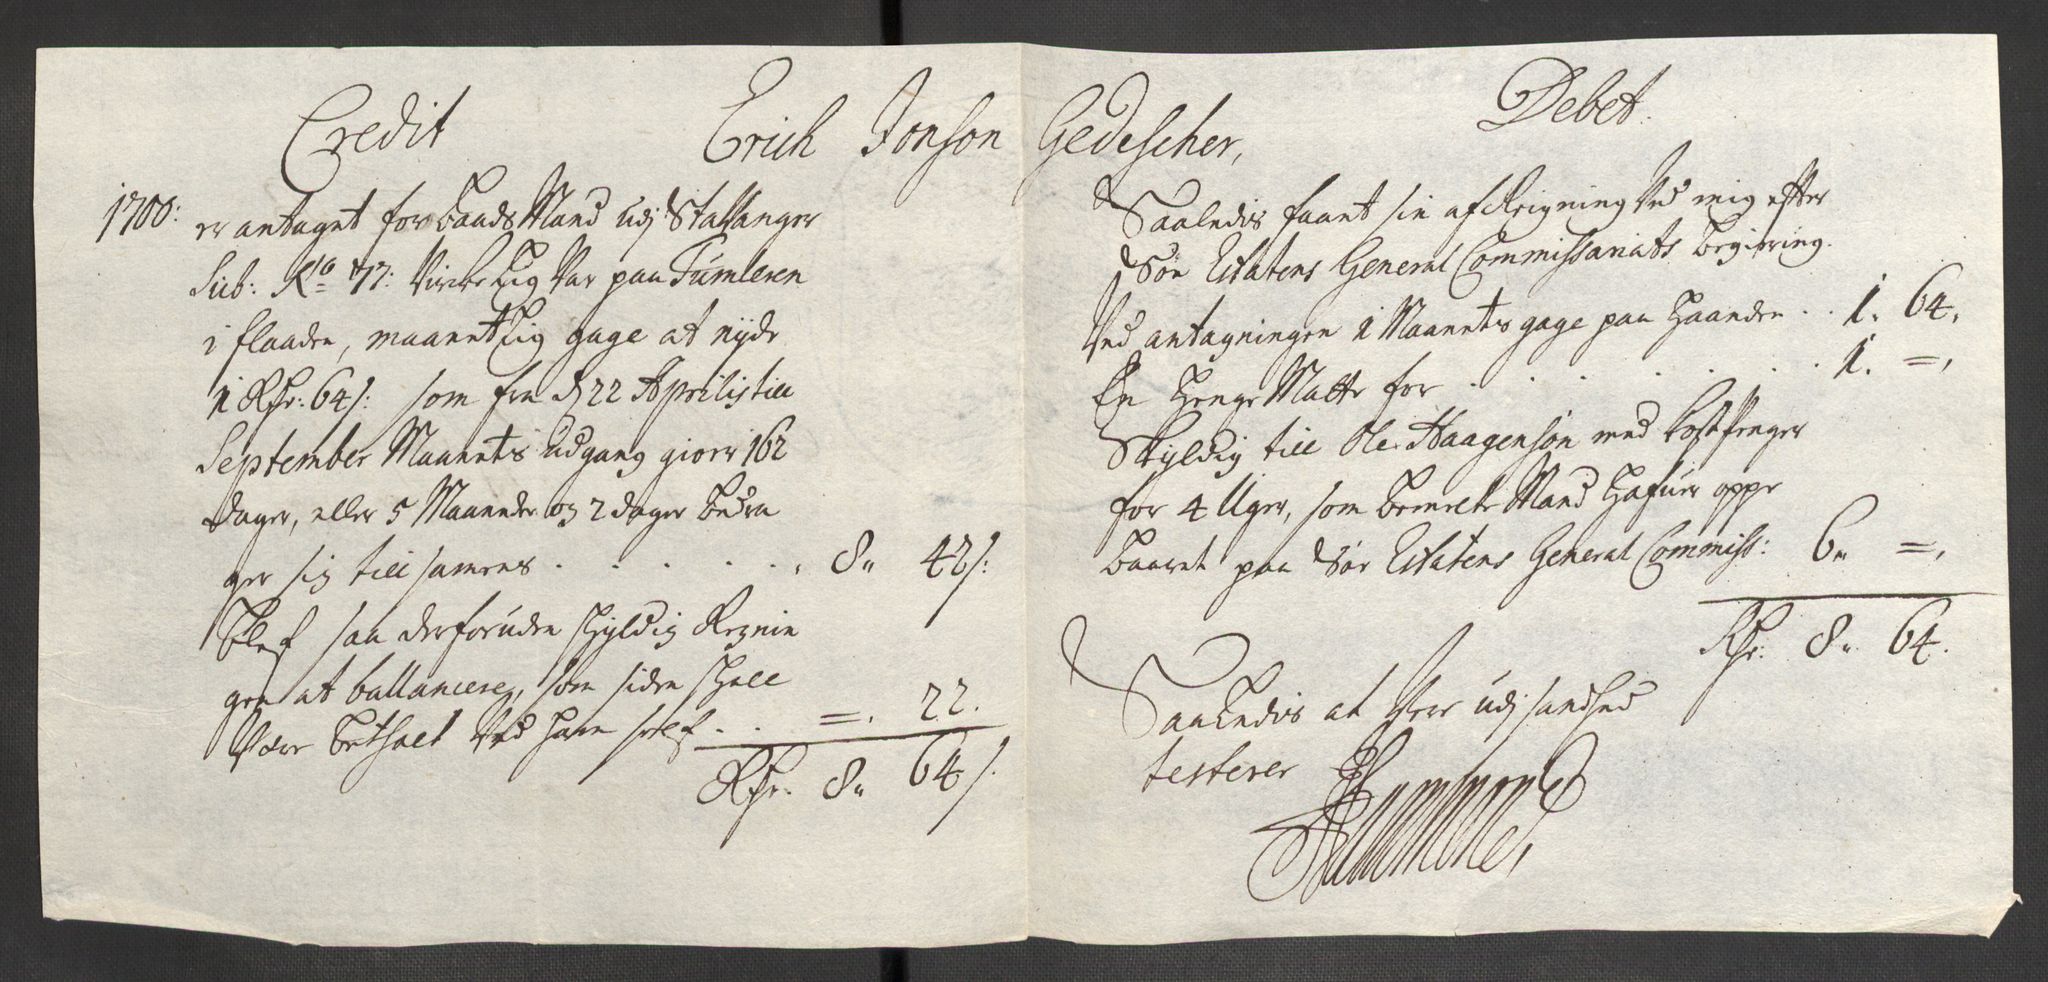 Credit Erich Jonson Gedescher, Debet.
1700:
er antaget for Baads Mand udj Stallanger
Sub: No 77: Virkelig Var paa Tumleren
i flaaden, maanetlig gage at nyde
1 Rdr: 64 s: som fra d 22 Aprilis till
September Maanets udgang giører 162
dager, eller 5 Maaneder og 2 dager bedra
ger sig till samens . . . . . . 8„ 42 s:
Blef saa derforuden schyldig Regnin
gen at ballancere, som siden schall
Være bethalt Ved ham self . . =. 22.
Rdr: 8„ 64 s.
Saaledis faaet sin afReigning Ved mig efter
Søe Etatens General Commissariats begiering.
Ved antagningen 1 Maanets gage paa haanden . . 1. 64.
En Henge Matte for . . . . . . . 1. =,
Skyldig till Ole Haagensøn med kostpenger
for 4 Uger, som bemelte Mand hafuer oppe
baaret paa Søe Etatens General Commiss: 6„ =,
Rdr: 8„ 64.
Saaledis at Vere udj sandhed
testerer